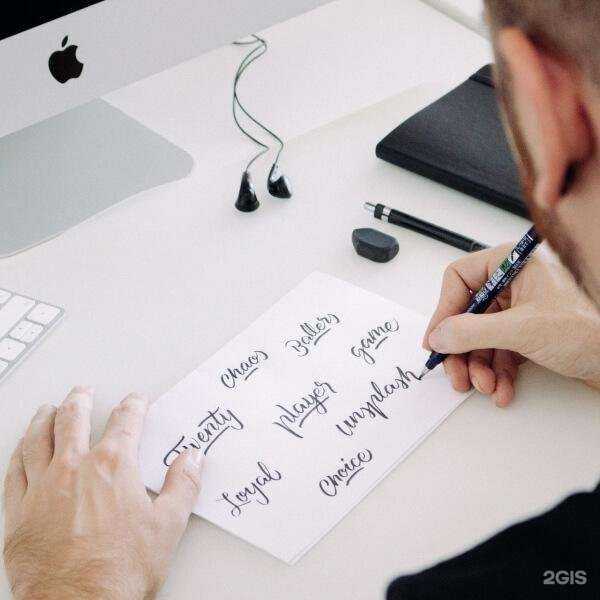 chaos Ballers game
Twenty player unsplash
Loyal choice
2GIS